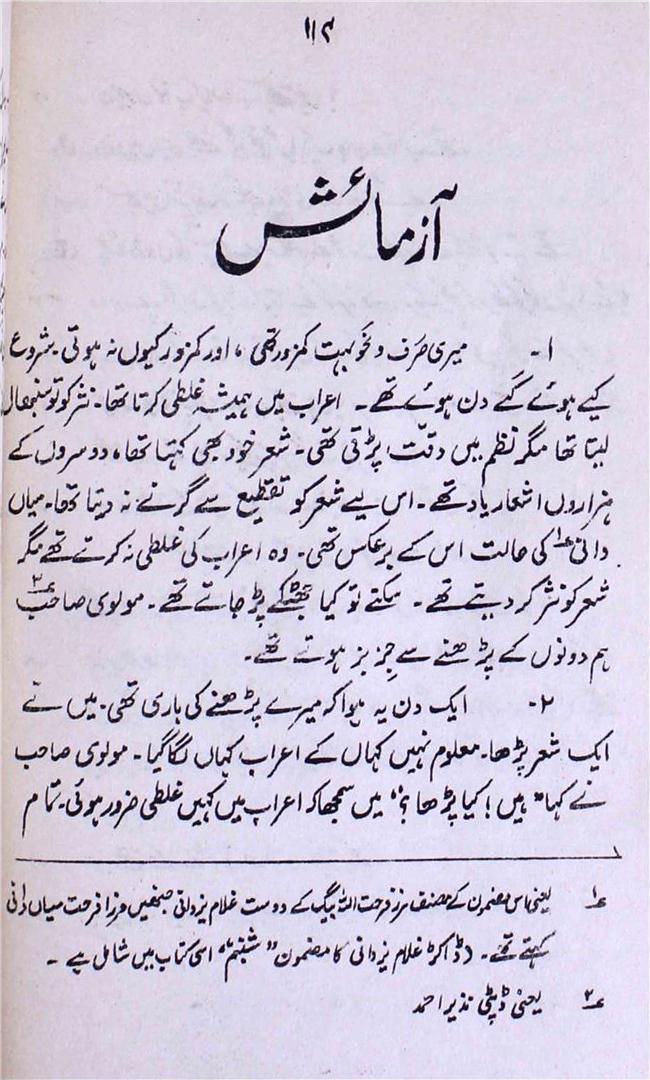 ۱۱۲
آزمائش
۱- میری صَرف و نحو بہت کمزور تھی، اور کمزور کیوں نہ ہوتی۔ شروع
کیے ہوئے کَے دن ہوئے تھے۔ اعراب میں ہمیشہ غلطی کرتا تھا۔ نثر کو تو سنبھال
لیتا تھا مگر نظم میں دقّت پڑتی تھی۔ شعر خود بھی کہتا تھا، دوسروں کے
ہزاروں اشعار یاد تھے۔ اس لیے شعر کو تقطیع سے گرنے نہ دیتا تھا۔ میاں
دانی؂۱ کی حالت اس کے برعکس تھی۔ وہ اعراب کی غلطی نہ کرتے تھے مگر
شعر کو نثر کر دیتے تھے۔ سکتے تو کیا جھٹکے پڑ جاتے تھے۔ مولوی صاحب؂۲
ہم دونوں کے پڑھنے سے جِز بز ہوتے تھے۔
۲- ایک دن یہ ہوا کہ میرے پڑھنے کی باری تھی۔ میں نے
ایک شعر پڑھا۔ معلوم نہیں کہاں کے اعراب کہاں لگا گیا۔ مولوی صاحب
نے کہا "ہیں! کیا پڑھا؟" میں سمجھا کہ اعراب میں کہیں غلطی ضرور ہوئی۔ تمام
؂۱ یعنی اس مضمون کے مصنف مرزا فرحت اللہ بیگ کے دوست غلام یزدانی جنھیں مرزا فرحت میاں دانی
کہتے تھے۔ (ڈاکٹر غلام یزدانی کا مضمون "شبنم" اسی کتاب میں شامل ہے۔
؂۲ یعنی ڈپٹی نذیر احمد